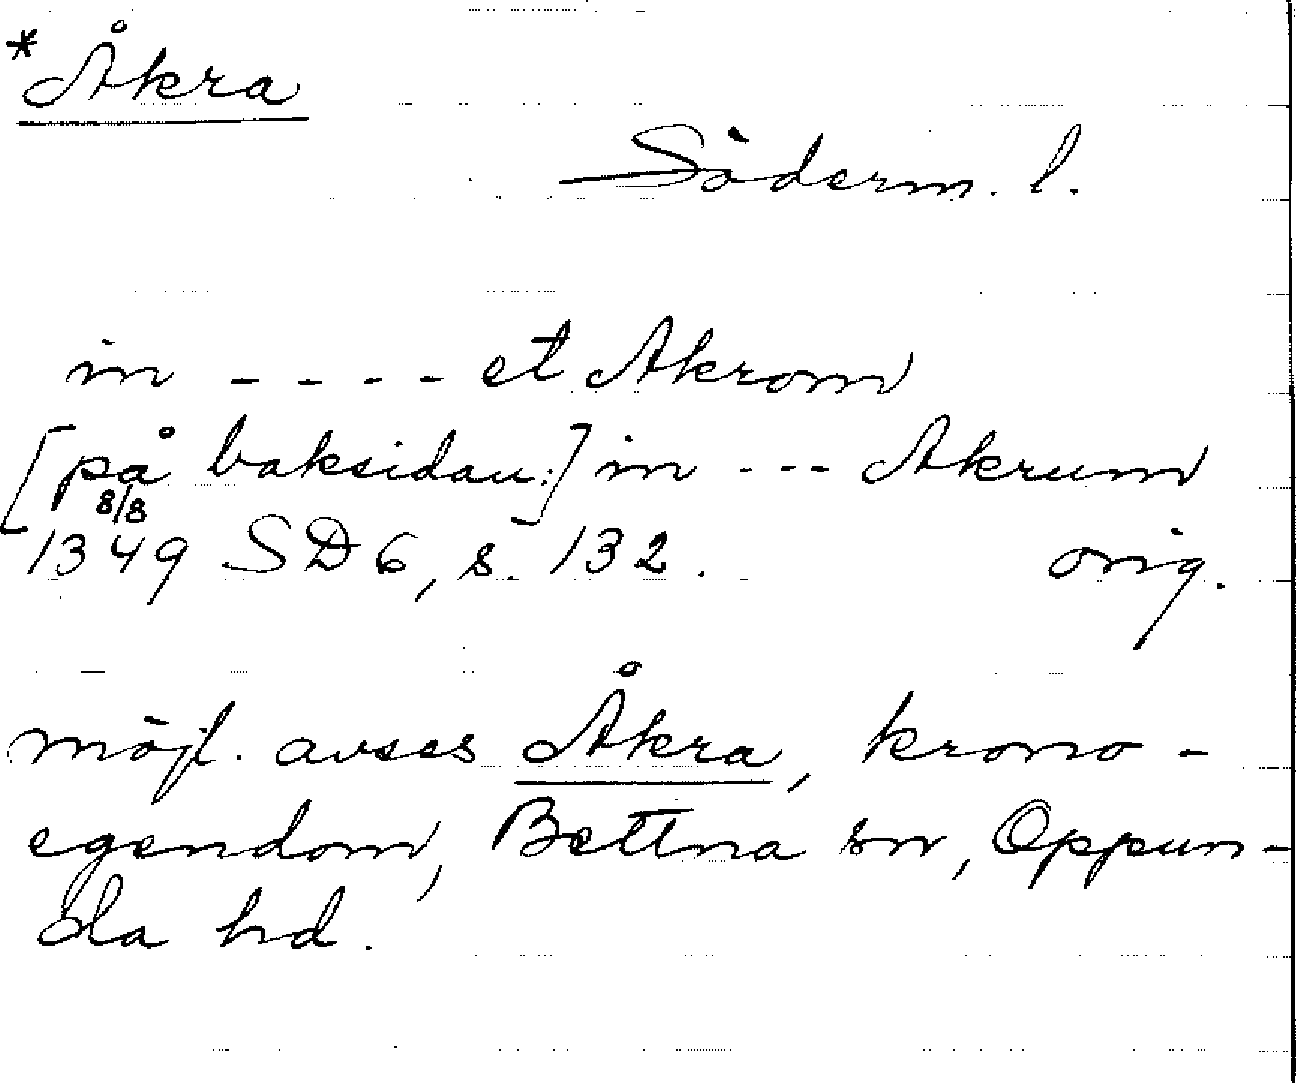 *Åkra
Söderm. l.
in - - - - et Akrom
[på baksidan:] in - - - Akrum
8/8
1349 SD 6, s. 132. orig.
möjl. avses Åkra, krono-
egendom, Bettna sn, Oppun-
da hd.